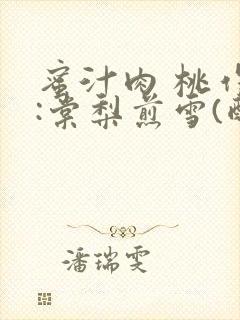 蜜汁肉桃作
:棠梨煎雪(酥
潘瑞雯